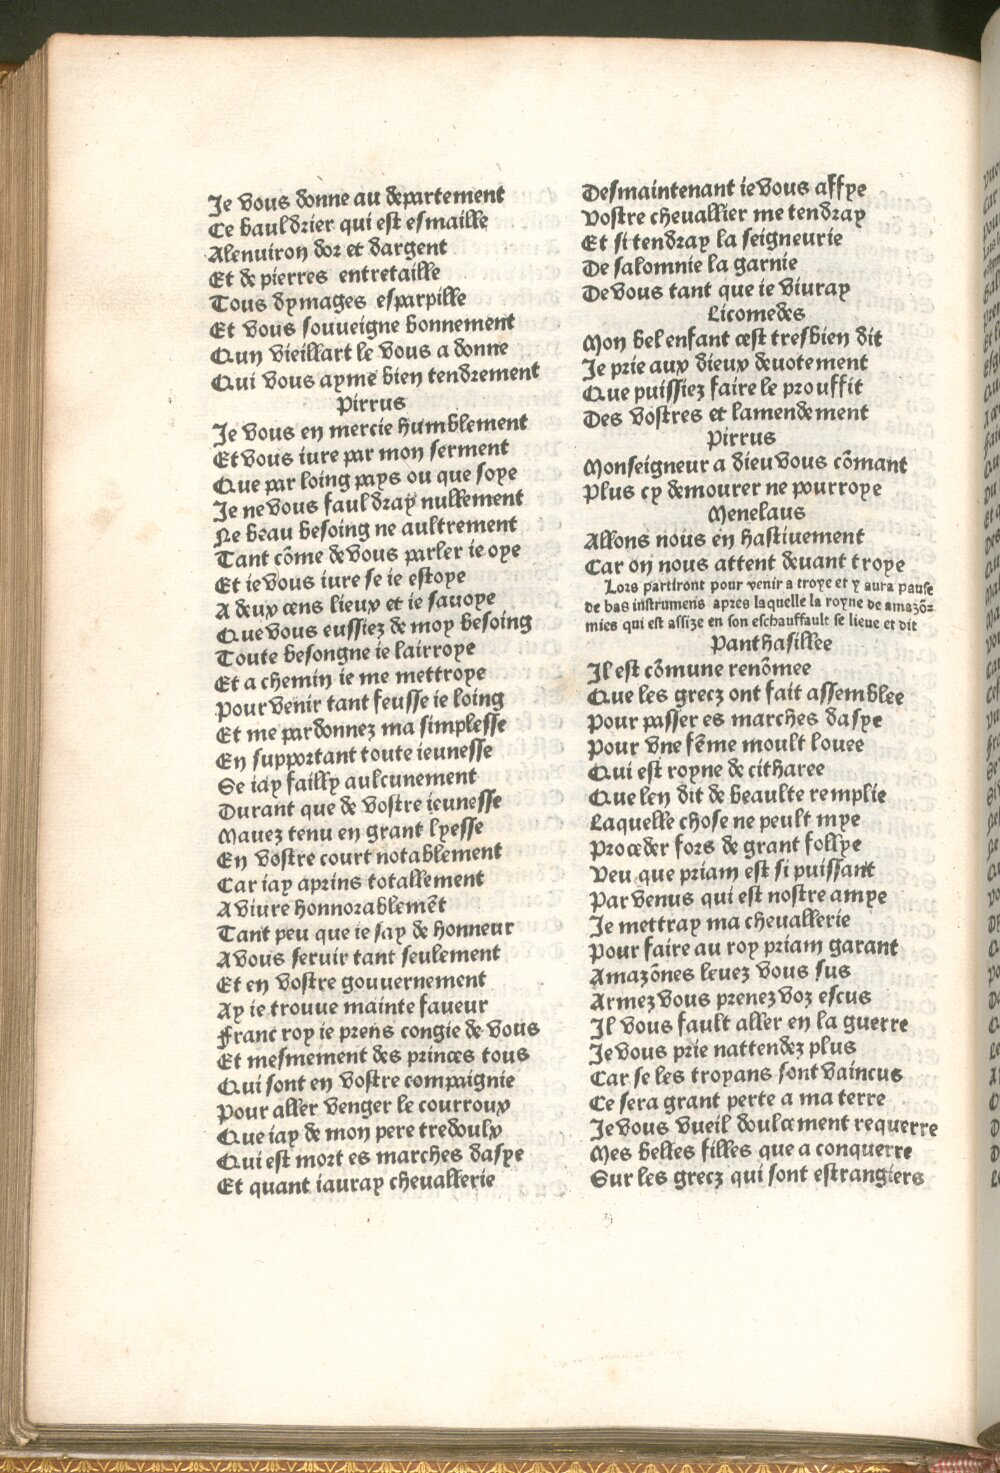 Je vous donne au departement
Ce bauldrier qui est esmaille
Alenuiron dor et dargent
Et de pierres entretaille
Tous dymages esparpille
Et vous souueigne bonnement
Qun vieillart le vous a donne
Qui vous ayme bien tendrement
Pirrus
Je vous en mercie humblement
Et vous iure par mon serment
Que par loing pays ou que soye
Je ne vous fauldray nullement
Ne beau besoing ne aultrement
Tant cõme de vous parler ie oye
Et ie vous iure se ie estoye
A deux cens lieux et ie sauoye
Que vous eussiez de moy besoing
Toute besongne ie lairroye
Et a chemin ie me mettroye
Pour venir tant feusse ie loing
Et me pardonnez ma simplesse
En supportant toute ieunesse
Se iay failly aulcunement
Durant que de vostre ieunesse
Mauez tenu en grant lyesse
En vostre court notablement
Car iay aprins totallement
A viure honnorablemẽt
Tant peu que ie say de honneur
A vous seruir tant seulement
Et en vostre gouuernement
Ay ie trouue mainte faueur
Franc roy ie prens congie de vous
Et mesmement des princes tous
Qui sont en vostre compaignie
Pour aller venger le courroux
Que iay de mon pere tredoulx
Qui est mort es marches dasye
Et quant iauray cheuallerie
Desmaintenant ie vous affye
Vostre cheuallier me tendray
Et si tendray la seigneurie
De salomnie la garnie
De vous tant que ie viuray
Licomedes
Mon bel enfant cest tresbien dit
Je prie aux dieux deuotement
Que puissiez faire le prouffit
Des vostres et lamendement
Pirrus
Monseigneur a dieu vous cõmant
Plus cy demourer ne pourroye
Menelaus
Allons nous en hastiuement
Car on nous attent deuant troye
Lors partiront pour venir a troye et y aura pause
de bas instrumens apres laquelle la royne de amazõ-
mies qui est assize en son eschauffault se lieue et dit
Panthasillee
Il est cõmune renõmee
Que les grecz ont fait assemblee
Pour passer es marches dasye
Pour vne fẽme moult louee
Qui est royne de citharee
Que len dit de beaulte remplie
Laquelle chose ne peult mye
Proceder fors de grant follye
Veu que priam est si puissant
Par venus qui est nostre amye
Je mettray ma cheuallerie
Pour faire au roy priam garant
Amazõnes leuez vous sus
Armez vous prenez voz escus
Il vous fault aller en la guerre
Je vous prie nattendez plus
Car se les troyans sont vaincus
Ce sera grant perte a ma terre
Je vous vueil doulcement requerre
Mes belles filles que a conquerre
Sur les grecz qui sont estrangiers